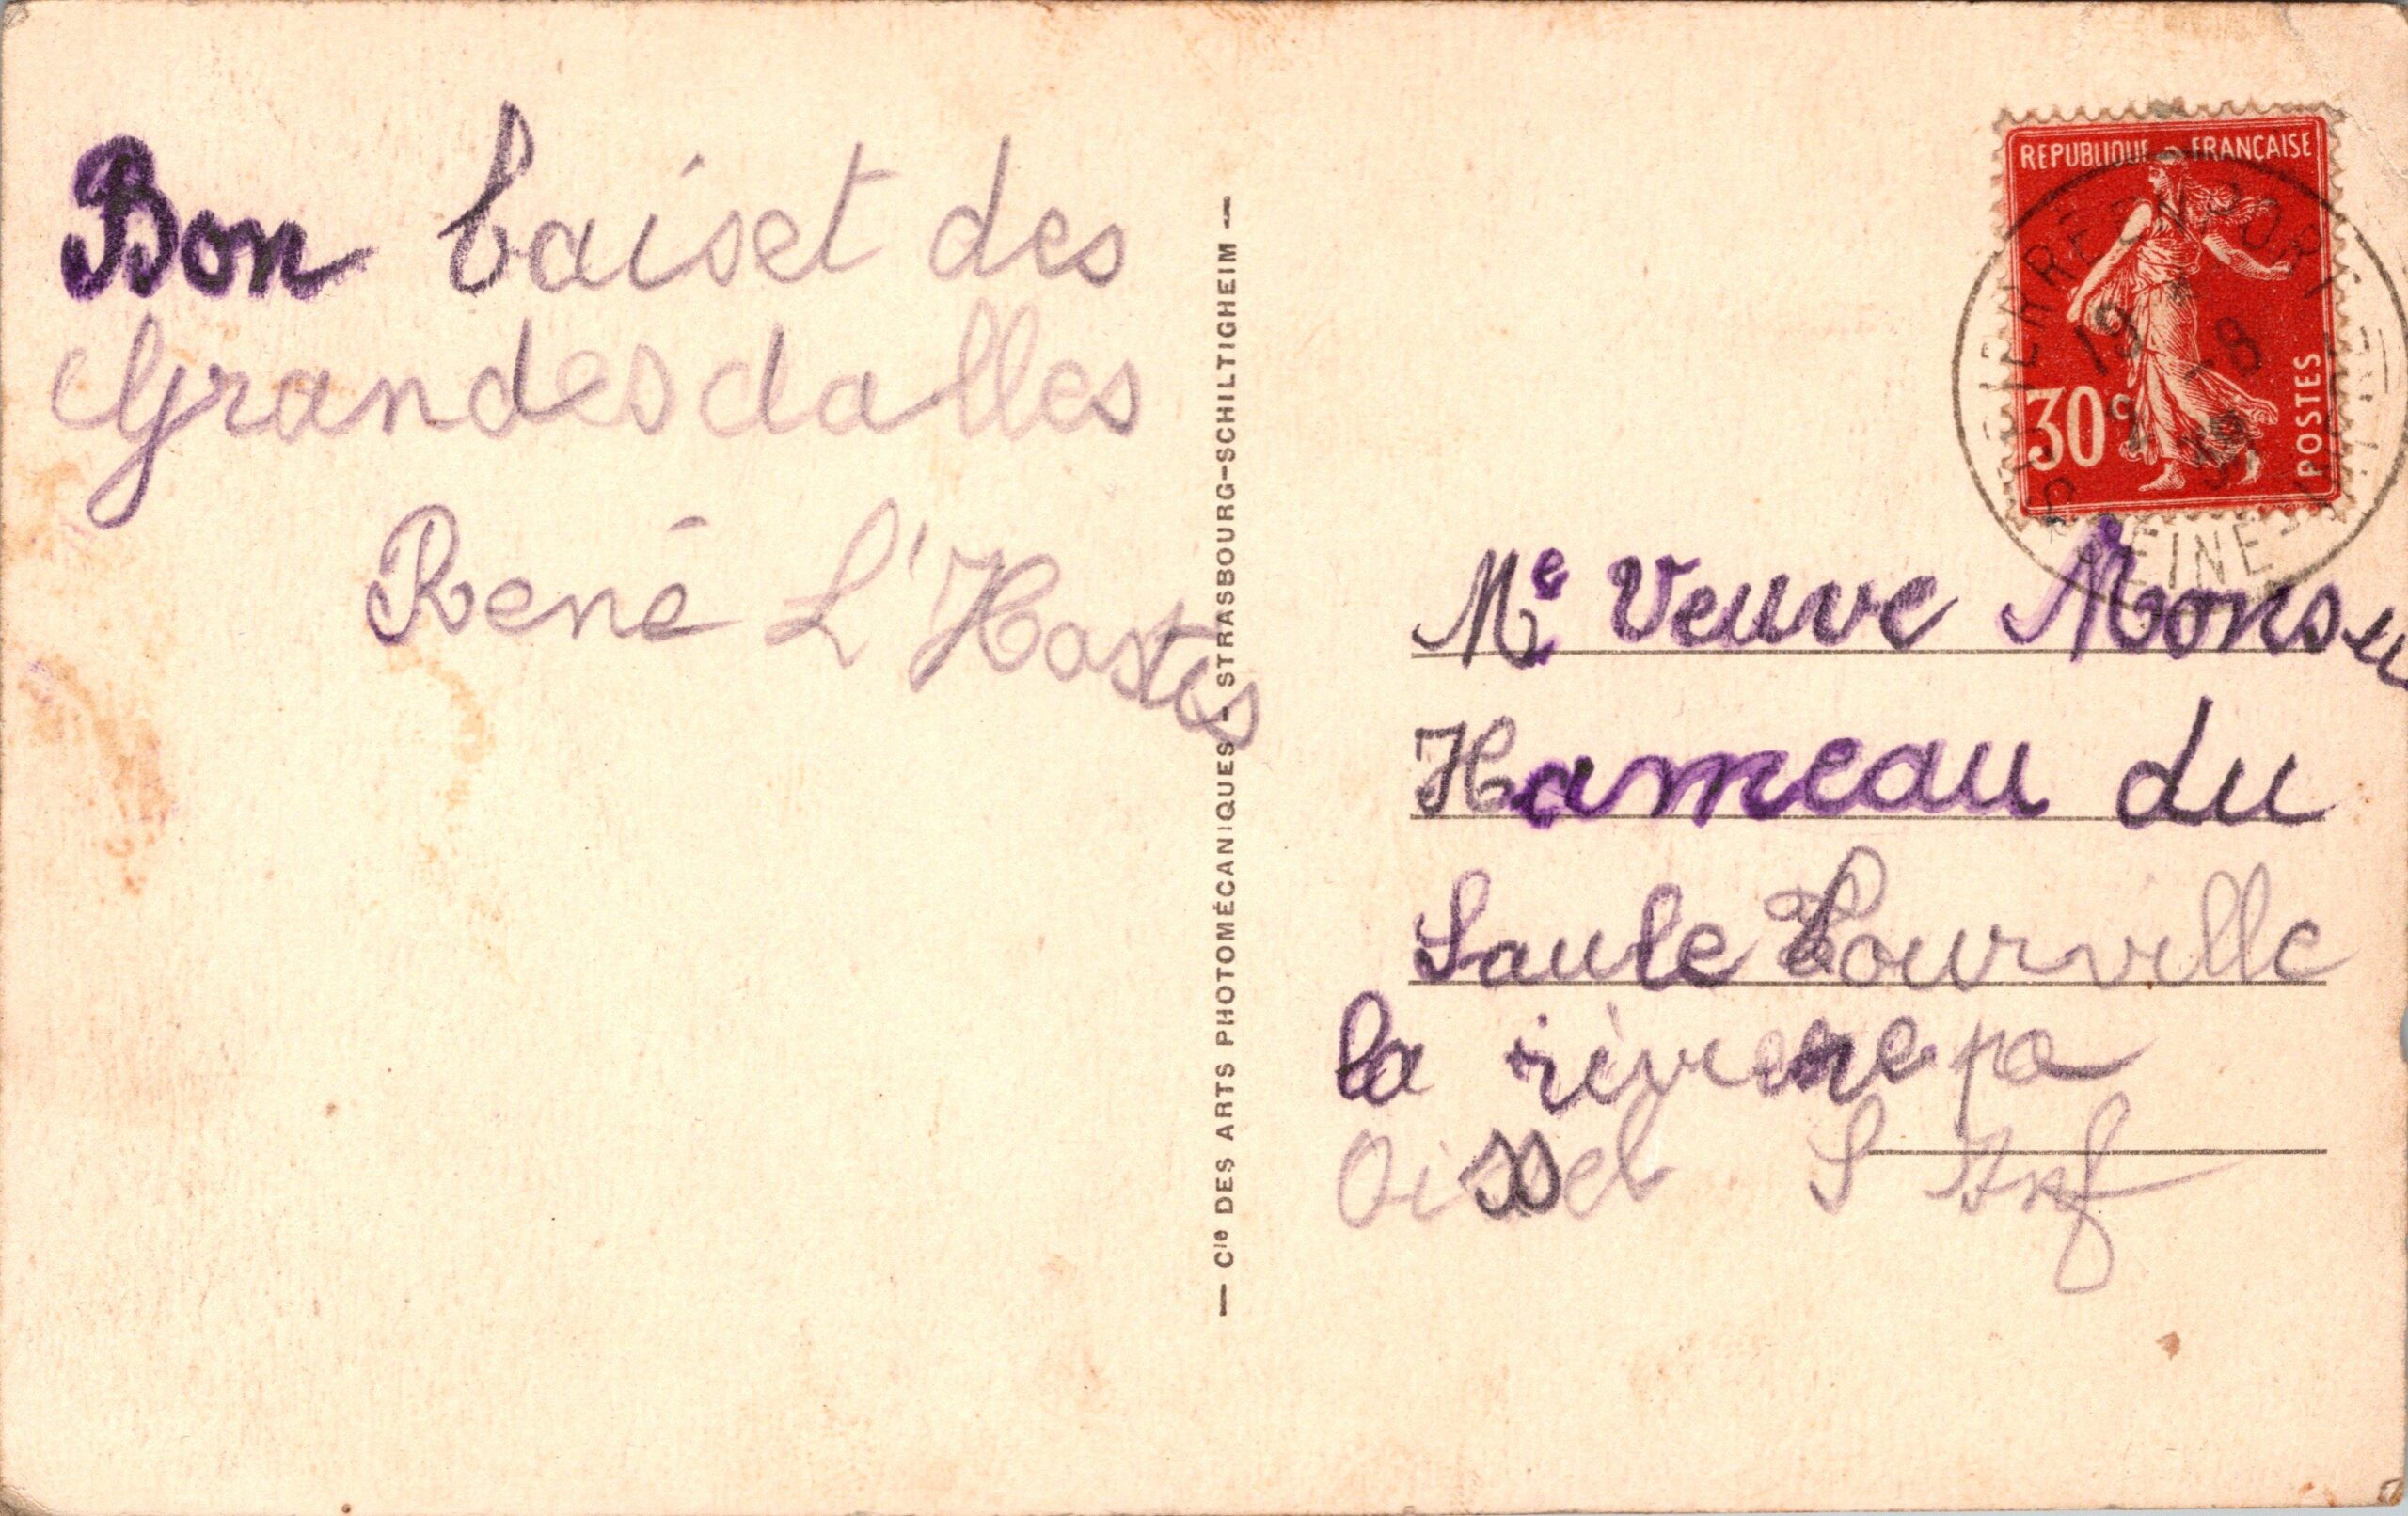 Bon baiset des
Grandes dalles
René L'Hostis
— Cie DES ARTS PHOTOMÉCANIQUES - STRASBOURG-SCHILTIGHEIM —
REPUBLIQUE FRANÇAISE
30c
POSTES
ST PIERRE EN PORT
19 -8
39
SEINE-INFRE
Me Veuve
Hameau du
Saule Tourville
la rivrene pa
Oissel S Inf